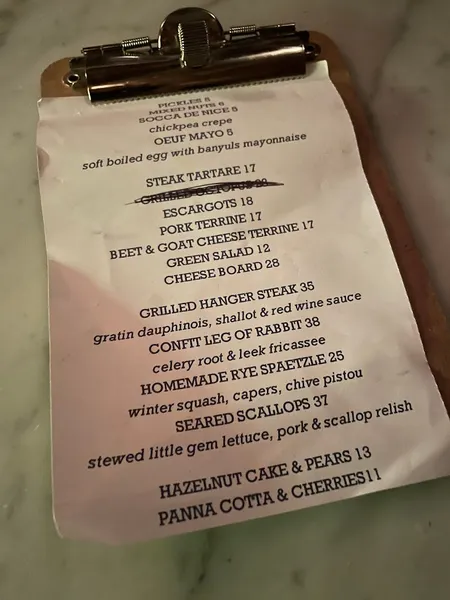 PICKLES 5
MIXED NUTS 6
SOCCA DE NICE 5
chickpea crepe
OEUF MAYO 5
soft boiled egg with banyuls mayonnaise
STEAK TARTARE 17
GRILLED OCTOPUS
ESCARGOTS 18
PORK TERRINE 17
BEET & GOAT CHEESE TERRINE 17
GREEN SALAD 12
CHEESE BOARD 28
GRILLED HANGER STEAK 35
gratin dauphinois, shallot & red wine sauce
CONFIT LEG OF RABBIT 38
celery root & leek fricassee
HOMEMADE RYE SPAETZLE 25
winter squash, capers, chive pistou
SEARED SCALLOPS 37
stewed little gem lettuce, pork & scallop relish
HAZELNUT CAKE & PEARS 13
PANNA COTTA & CHERRIES11